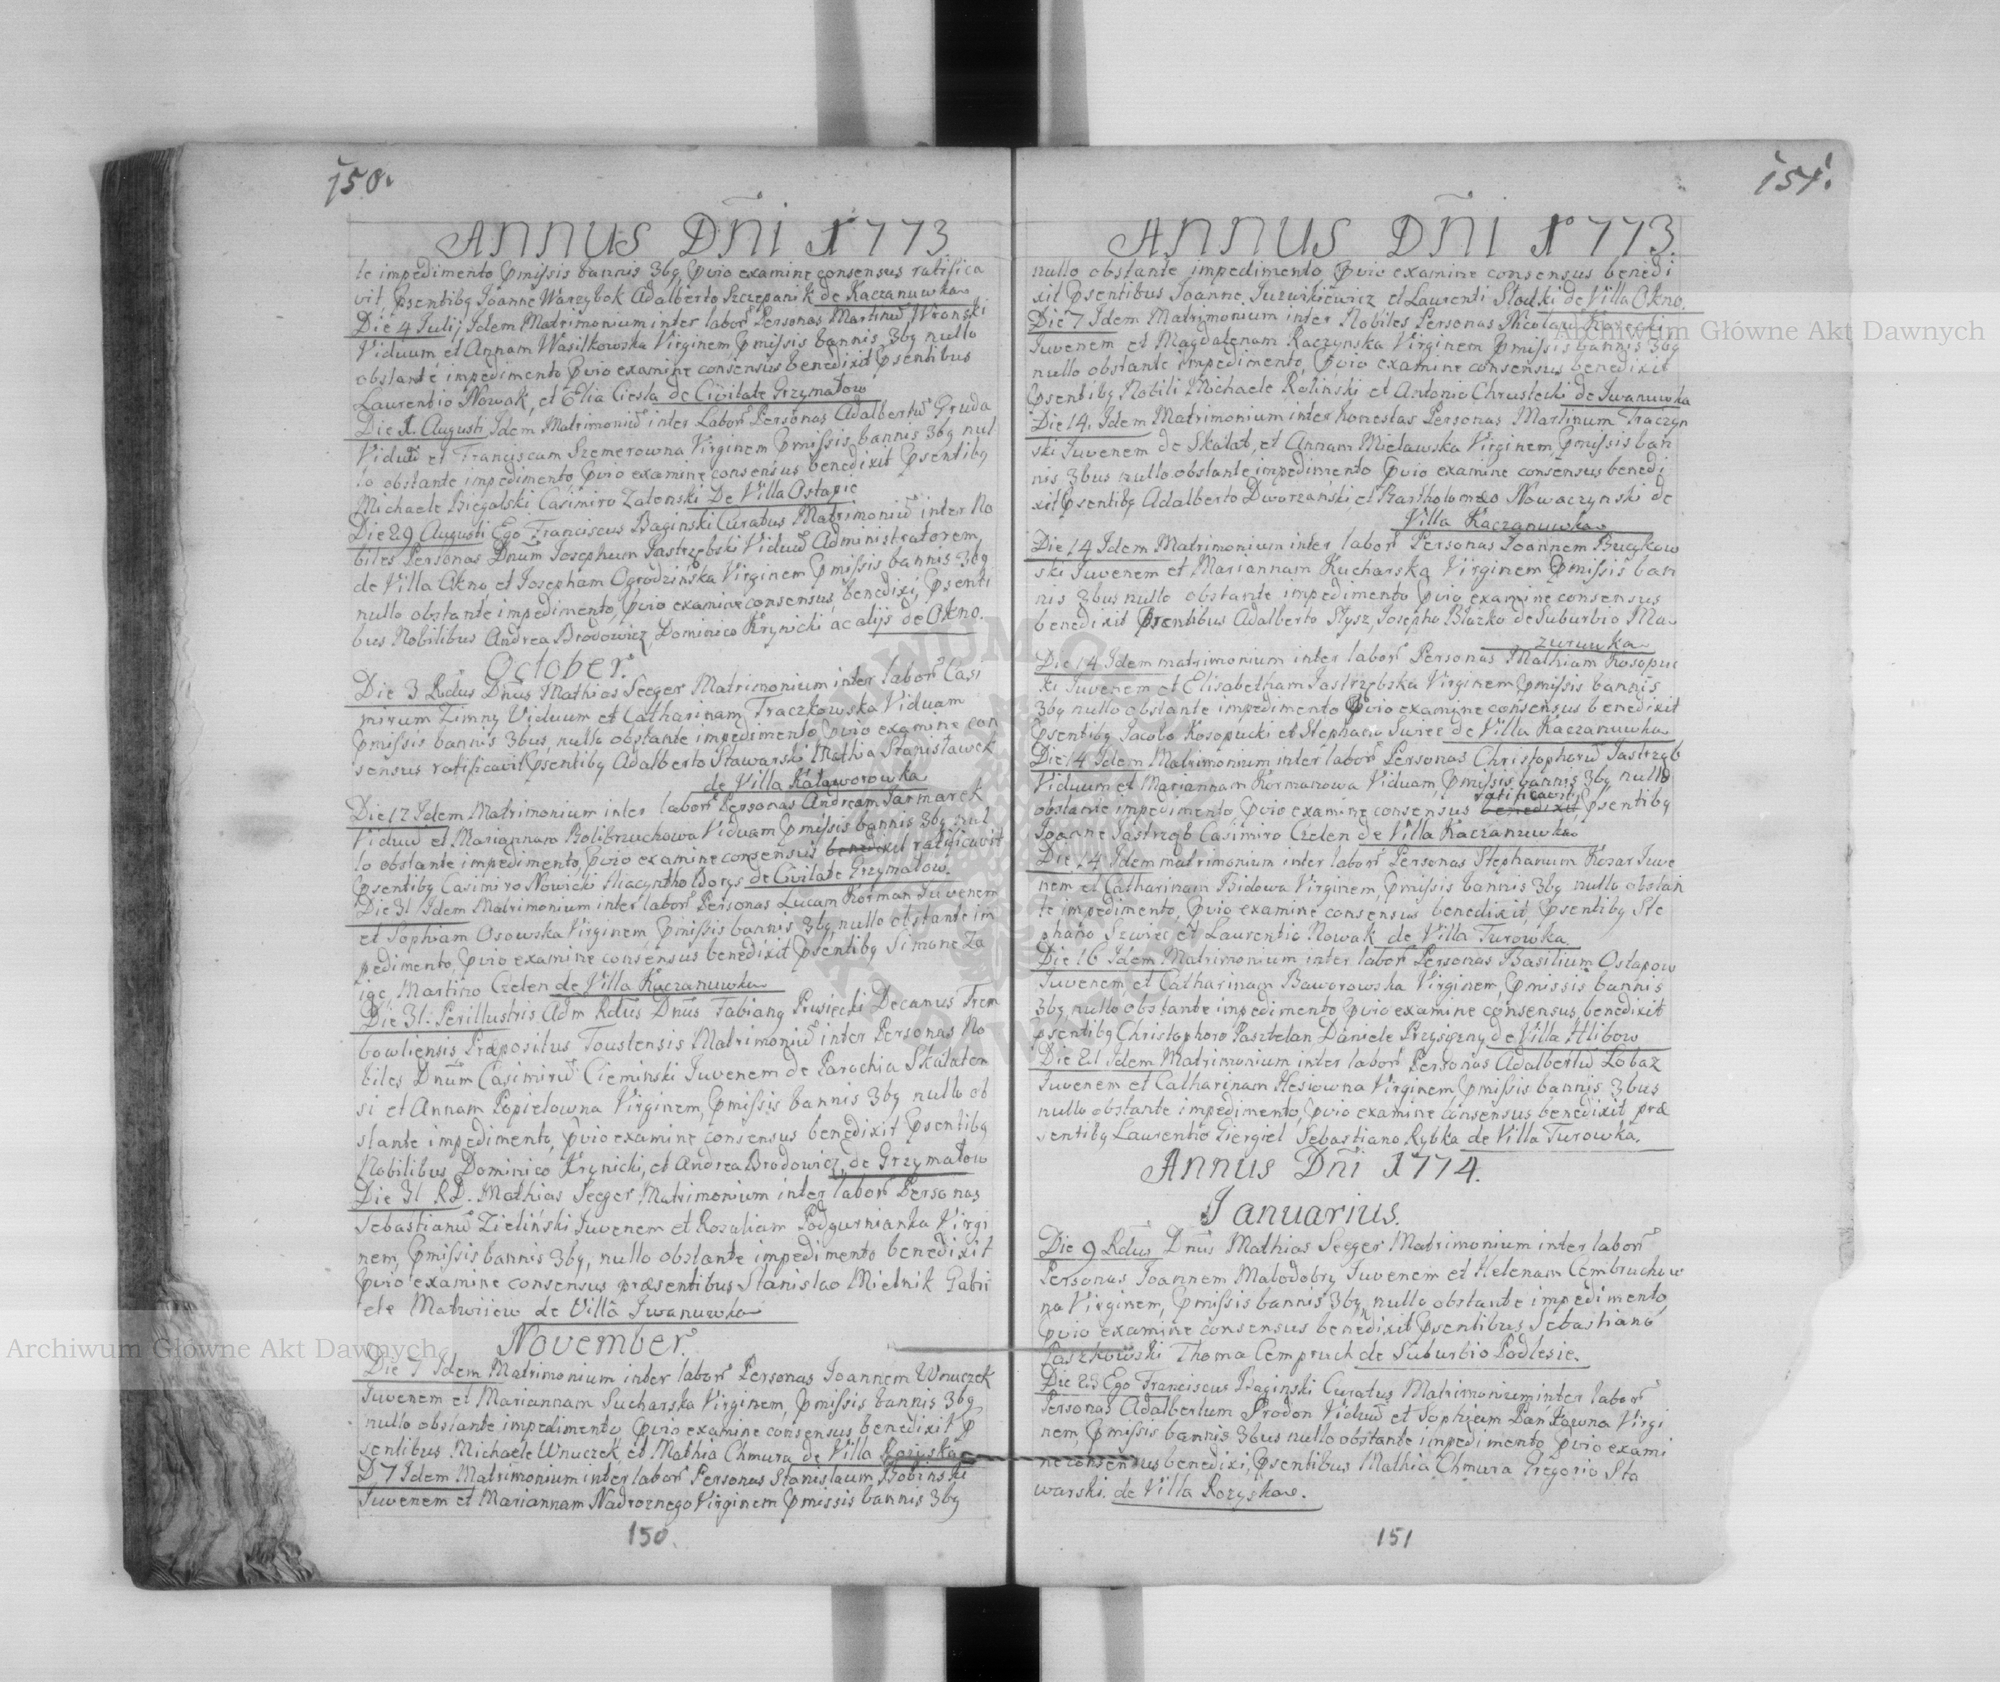 150.
ANNUS Dñi 1773
te impedimento pmissis bannis 3bq pvio examine consensus ratifica
vit, psentibq Joanne Warzybok Adalberto Szczepanik de Kaczanuwka
Die 4 Julij Idem Matrimonium inter labor Personas Martinũ Wronski
Viduum et Annam Wasilkowska Virginem, pmissis bannis 3bq nullo
obstante impedimento pvio examine consensus benedixit psentibus
Laurentio Nowak, et Elia Ciesla de Civitate Grzymałow
Die 1. Augusti Idem Matrimoniũ inter Labor Personas Adalbertũ Gruda
Viduũ et Franciscam Szemerowna Virginem pmissis bannis 3bq nul
lo obstante impedimento pvio examine consensus benedixit psentibq
Michaele Biegalski Casimiro Zalenski De Villa Ostapie
Die 29 Augusti Ego Franciscus Baginski Curatus Matrimoniũ inter No
biles Personas Dnum Josephum Jastrzębski Viduũ Administratorem
de Villa Okno et Josepham Ogrodzińska Virginem pmissis bannis 3bq
nullo obstante impedimento, pvio examine consensus, benedixi, psenti
bus Nobilibus Andrea Brodowicz, Dominico Krynicki ac alijs de Okno.
October.
Die 3 Rdus Dnus Mathias Seeger Matrimonium inter labor Casi
mirum Zimny Viduum et Catharinam Traczkowska Viduam
pmissis bannis 3bus, nullo obstante impedimento, pvio examine con
sensus ratificavit psentibq Adalberto Stawarski Mathia Stanisławek
de Villa Kaławorowka
Die 17 Idem Matrimonium inter labor Personas Andream Jarmarek
Viduũ et Mariannam Bolibrzuchowa Viduam pmissis bannis 3bq nul
lo obstante impedimento, pvio examine consensus benedixit ratificavit
psentibq Casimiro Nowicki Hiacyntho Dorys de Civitate Grzymałow.
Die 31 Idem Matrimonium inter labor Personas Lucam Korman Juvenem
et Sophiam Osowska Virginem pmissis bannis 3bq nullo obstante im
pedimento, pvio examine consensus benedixit psentibq Simone Za
iąc Martino Czelen de Villa Kaczanuwka
Die 31. Perillustris Adm Rdus Dnus Fabianq Prusiecki Decanus Trem
bowliensis Præpositus Toustensis Matrimoniũ inter Personas No
biles Dnum Casimirũ Cieminski Juvenem de Parochia Skalaten
si et Annam Popielowna Virginem, pmissis bannis 3bq nullo ob
stante impedimento, pvio examine consensus benedixit psentibq
Nobilibus Dominico Krynicki, et Andrea Brodowicz, de Grzymałow
Die 31 RD. Mathias Seeger Matrimonium inter labor Personas
Sebastianũ Zieliński Juvenem et Rosaliam Podgurnianka Virgi
nem, pmissis bannis 3bq, nullo obstante impedimento benedixit
pvio examine consensus præsentibus Stanislao Mielnik Gabri
ele Matwiiew de Villa Iwanuwka
November.
Die 7 Idem Matrimonium inter labor Personas Joannem Wnuczek
Juvenem et Mariannam Sucharska Virginem, pmissis bannis 3bq
nullo obstante impedimento pvio examine consensus benedixit p
sentibus Michaele Wnuczek et Mathia Chmura de Villa Rożyska
D 7 Idem Matrimonium inter labor Personas Stanislaum Bobinski
Juvenem et Mariannam Nadroznego Virginem pmissis bannis 3bq
150.
151.
ANNUS Dñi 1773.
nullo obstante impedimento, pvio examine consensus benedi
xit psentibus Joanne Juzwikiewicz et Laurenti Słodki de Villa Okno.
Die 7 Idem Matrimonium inter Nobiles Personas Nicolaũ
Juvenem et Magdalenam Raczynska Virginem pmissis bannis 3bq
nullo obstante impedimento, pvio examine consensus benedixit
psentibq Nobili Michaele Roliński et Antonio Chrustecki de Iwanuwka
Die 14. Idem Matrimonium inter honestas Personas Martinum Traczyn
ski Juvenem de Skałat, et Annam Mielawska Virginem, pmissis ban
nis 3bus nullo obstante impedimento pvio examine consensus benedi
xit psentibq Adalberto Dworzański, et Bartholomæo Nowaczynski de
Villa Kaczanuwka
Die 14 Idem Matrimonium inter labor Personas Joannem Bucykow
ski Juvenem et Mariannam Kucharska Virginem pmissis ban
nis 3bus nullo obstante impedimento pvio examine consensus
benedixit psentibus Adalberto Stysz, Josepho Blazko de Suburbio Ma
zuruwka
Die 14 Idem matrimonium inter labor Personas Mathiam Kosopuc
ki Juvenem et Elisabetham Jastrzębska Virginem, pmissis bannis
3bq nullo obstante impedimento pvio examine consensus benedixit
psentibq Jacobo Kosopucki et Stephano Swiec de Villa Kaczanuwka
Die 14 Idem Matrimonium inter labor Personas Christophorũ Jastrzęb
Viduum et Mariannam Kormanowa Viduam, pmissis bannis 3bq nullo
obstante impedimento, pvio examine consensus benedixit ratificavit psentibq
Joanne Jastrząb Casimiro Czelen de Villa Kaczanuwka
Die 14 Idem matrimonium inter labor Personas Stephanum Kozar Juve
nem et Catharinam Bidowa Virginem, pmissis bannis 3bq nullo obstan
te impedimento, pvio examine consensus benedixit, psentibq Ste
phano Szwiec et Laurentio Nowak de Villa Turowka
Die 16 Idem Matrimonium inter labor Personas Basilium Ostapow
Juvenem et Catharinam Baworowska Virginem, pmissis bannis
3bq nullo obstante impedimento pvio examine consensus, benedixit
psentibq Christophoro Pasztelan Daniele Przysiężny de Villa Hlibow
Die 21 Idem Matrimonium inter labor Personas Adalbertũ Lobaz
Juvenem et Catharinam Hesiowna Virginem, pmissis bannis 3bus
nullo obstante impedimento, pvio examine consensus benedixit, præ
sentibq Laurentio Giergiel Sebastiano Rybka de Villa Turowka.
Annus Dñi 1774.
Januarius.
Die 9 Rdus Dnus Mathias Seeger Matrimonium inter labor
Personas Joannem Małodobry Juvenem et Helenam Cembruchow
na Virginem, pmissis bannis 3bq, nullo obstante impedimento,
pvio examine consensus benedixit psentibus Sebastiano
Paszkowski Thoma Cempruch de Suburbio Podlesie.
Die 23 Ego Franciscus Baginski Curatus Matrimonium inter labor
Personas Adalbertum Prodon Viduũ et Sophiam Pankowna Virgi
nem, pmissis bannis 3bus nullo obstante impedimento pvio exami
ne consensus benedixi, psentibus Mathia Chmura Gregorio Sta
warski. de Villa Rozyska.
151
Archiwum Główne Akt Dawnych
Archiwum Główne Akt Dawnych